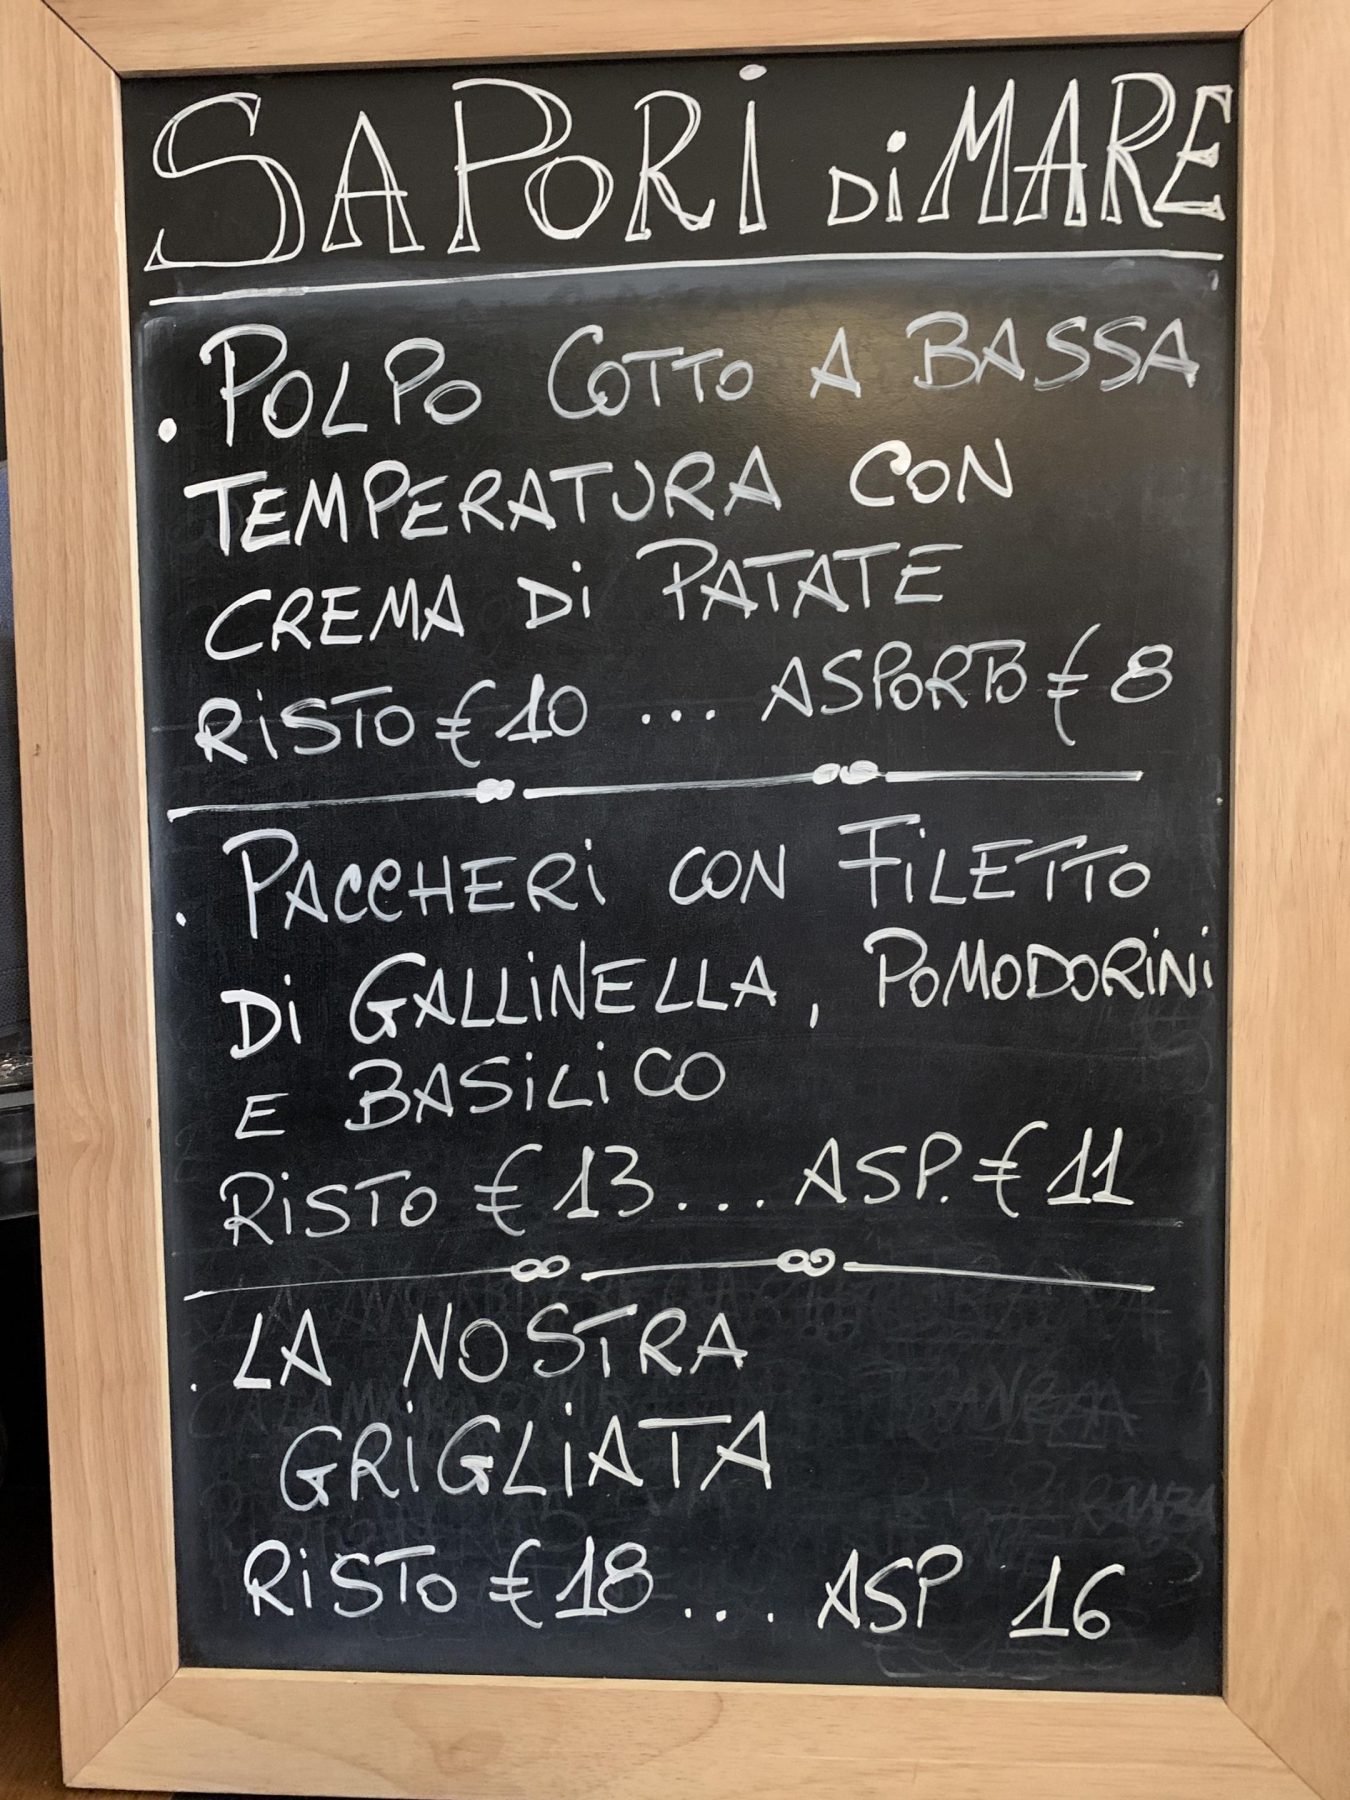 SAPORi Di MARE
. POLPO COTTO A BASSA
TEMPERATURA CON
CREMA Di PATATE
RiSTO € 10 ... ASPORTO € 8
. PACCHERi CON FiLETTO
Di GALLiNELLA, POMODORiNi
E BASiLiCO
RiSTO € 13 ... ASP. € 11
. LA NOSTRA
GRiGLiATA
RiSTO € 18 ... ASP 16